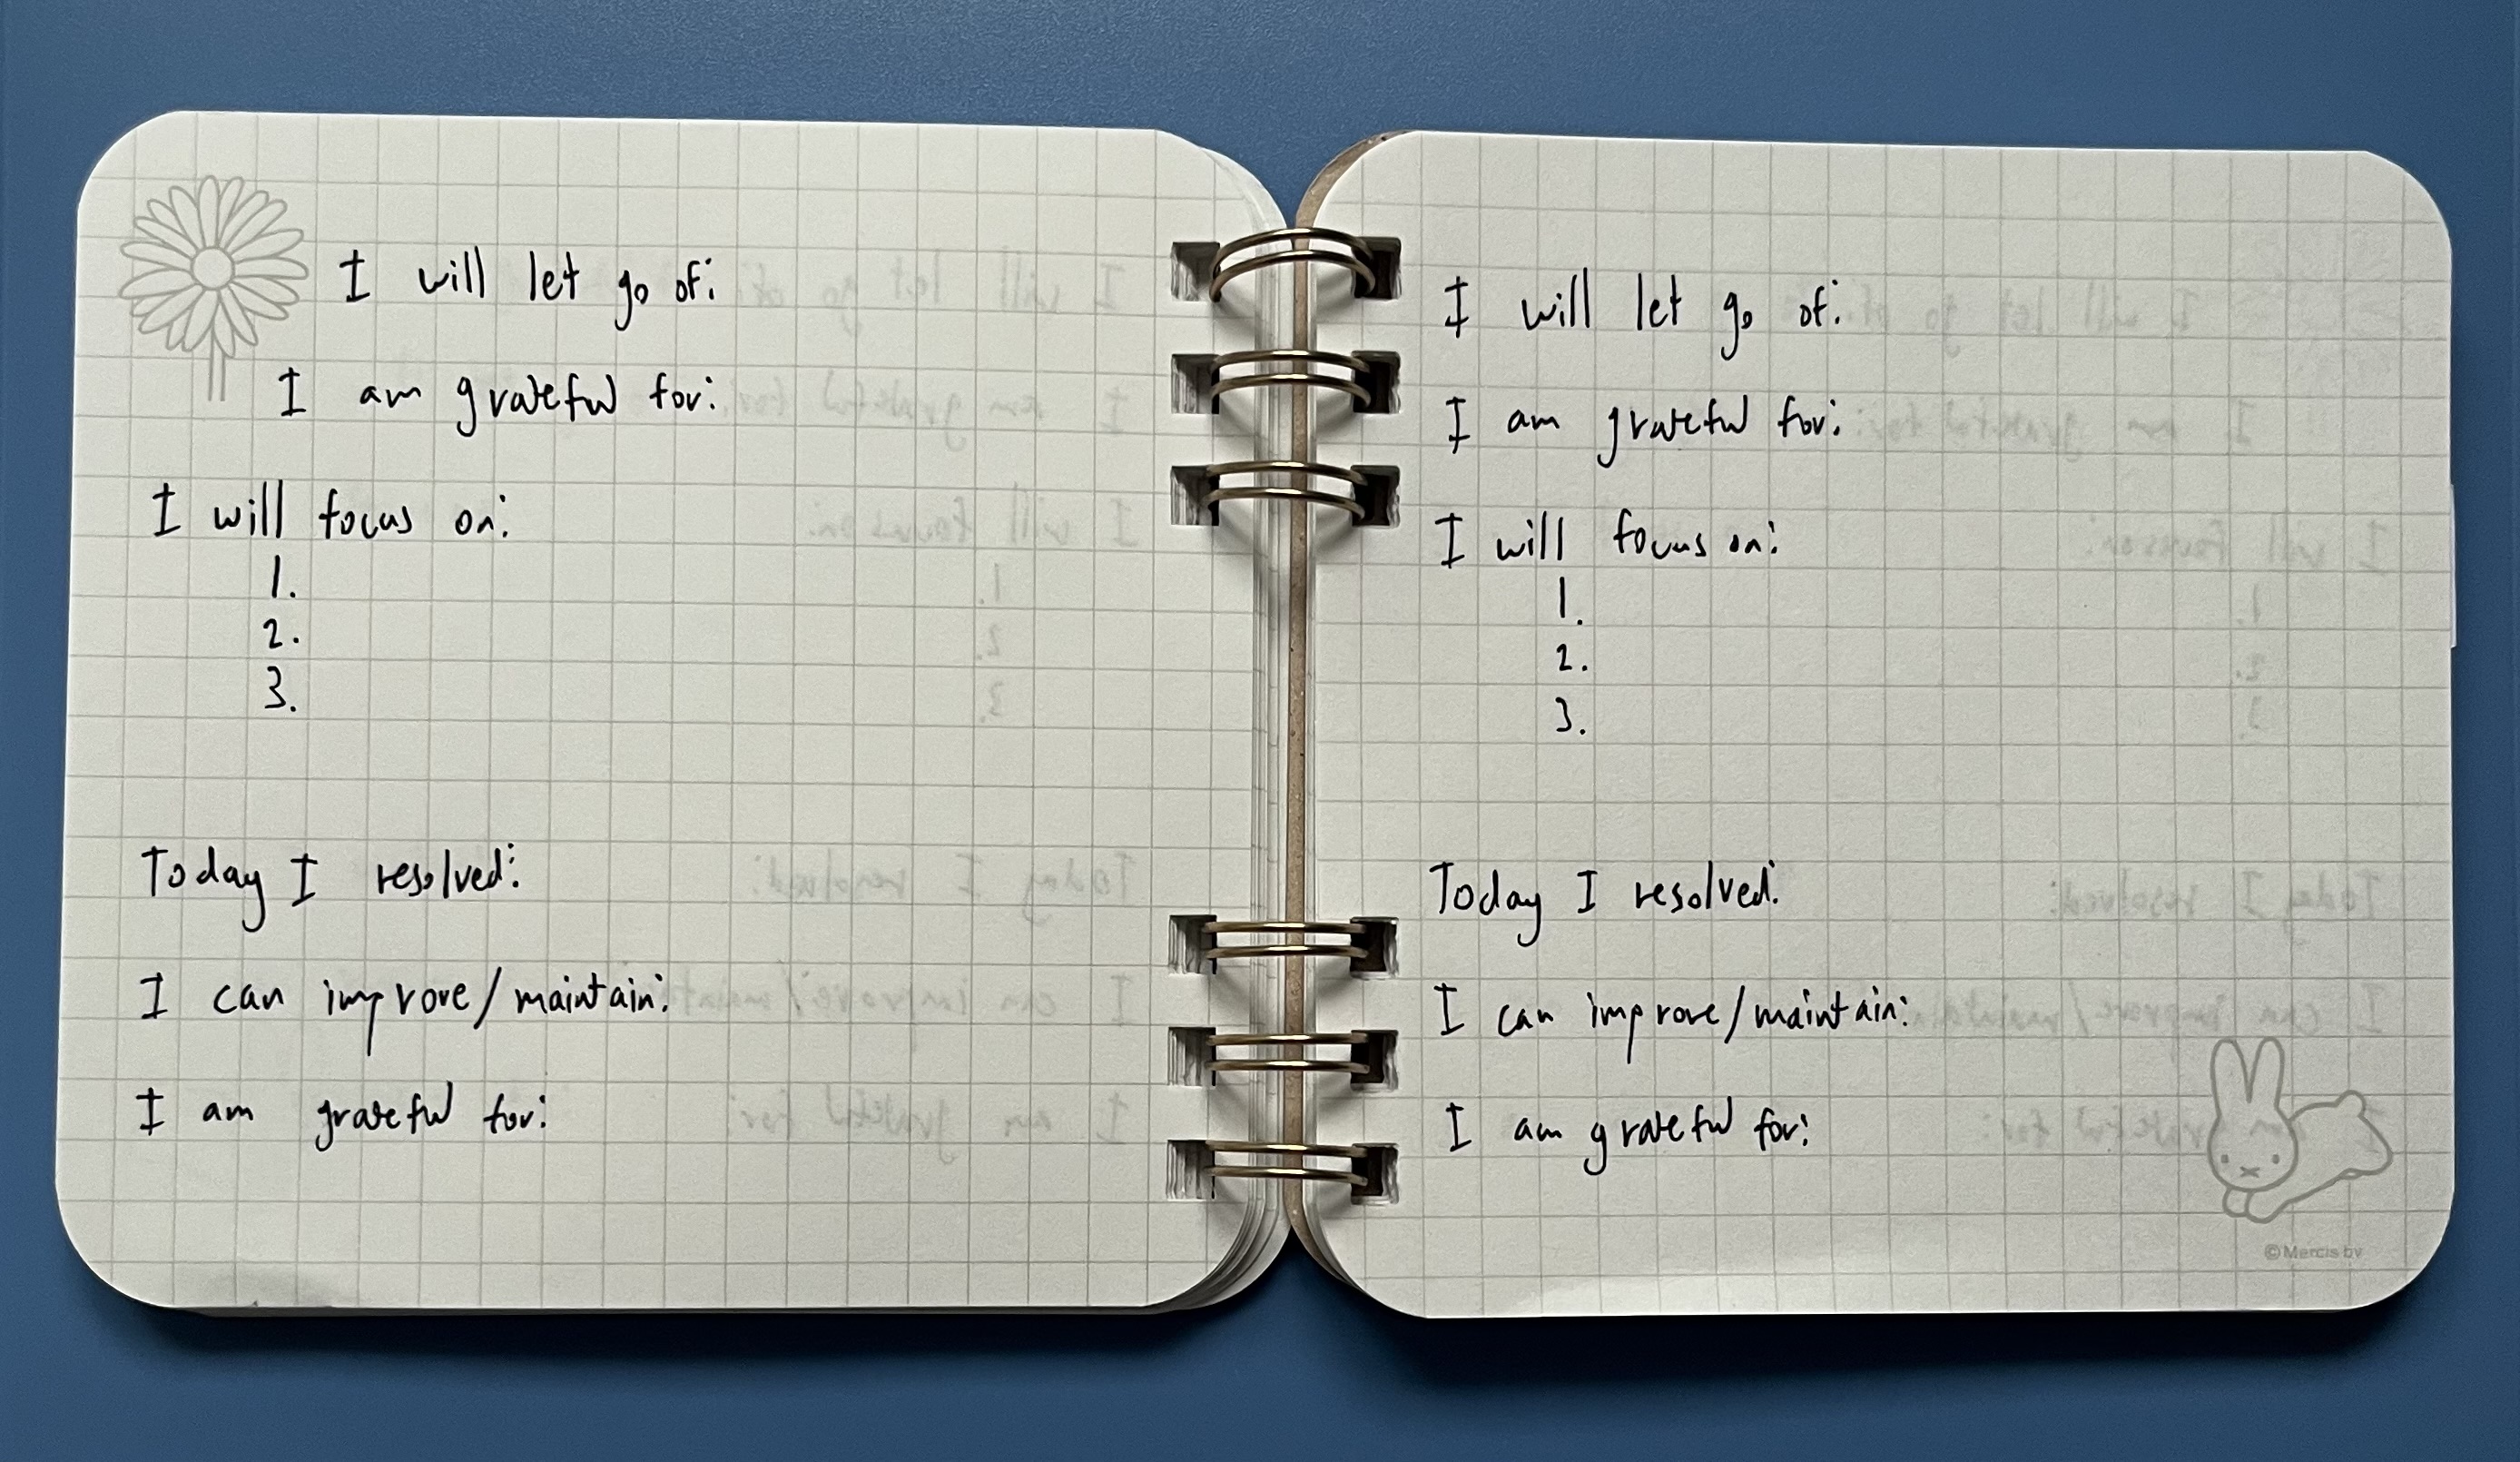 I will let go of:
I am grateful for:
I will focus on:
1.
2.
3.
Today I resolved:
I can improve/maintain:
I am grateful for:
I will let go of:
I am grateful for:
I will focus on:
1.
2.
3.
Today I resolved:
I can improve/maintain:
I am grateful for:
©Mercis bv